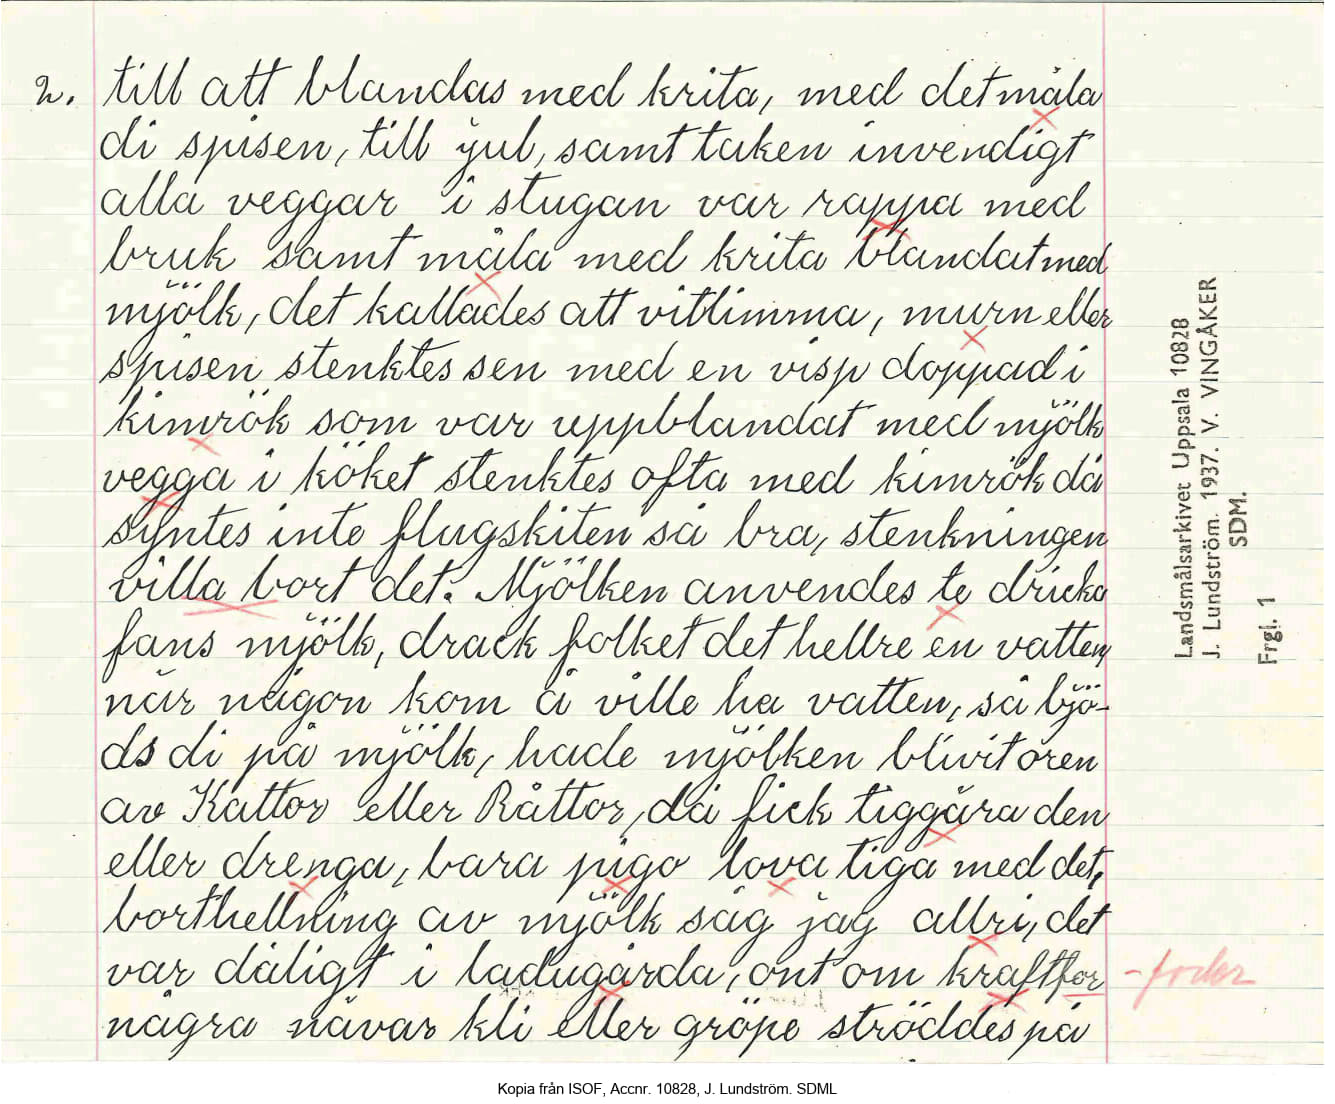 2. till att blandas med krita, med det måla
di spisen, till jul, samt taken invendigt
alla veggar i stugan var rappa med
bruk samt måla med krita blandat med
mjölk, det kallades att vitlimma, murn eller
spisen stenktes sen med en visp doppad i
kimrök som var uppblandat med mjölk
vegga i köket stenktes ofta med kimrök då
syntes inte flugskiten så bra, stenkningen
villa bort det. Mjölken anvendes te dricka
fans mjölk, drack folket det hellre en vatten,
når någon kom å ville ha vatten, så bjö-
ds di på mjölk, hade mjölken blivit oren
av Kattor eller Råttor, då fick tiggåra den
eller drenga, bara pigo lova tiga med det,
borthellning av mjölk såg jag allri, det
var dåligt i ladugårda, ont om kraftfor
-foder
några nåvar kli eller gröpe ströddes på
Landsmålsarkivet Uppsala 10828
J. Lundström. 1937. V. VINGÅKER
SDM.
Frgl. 1
Kopia från ISOF, Accnr. 10828, J. Lundström. SDML